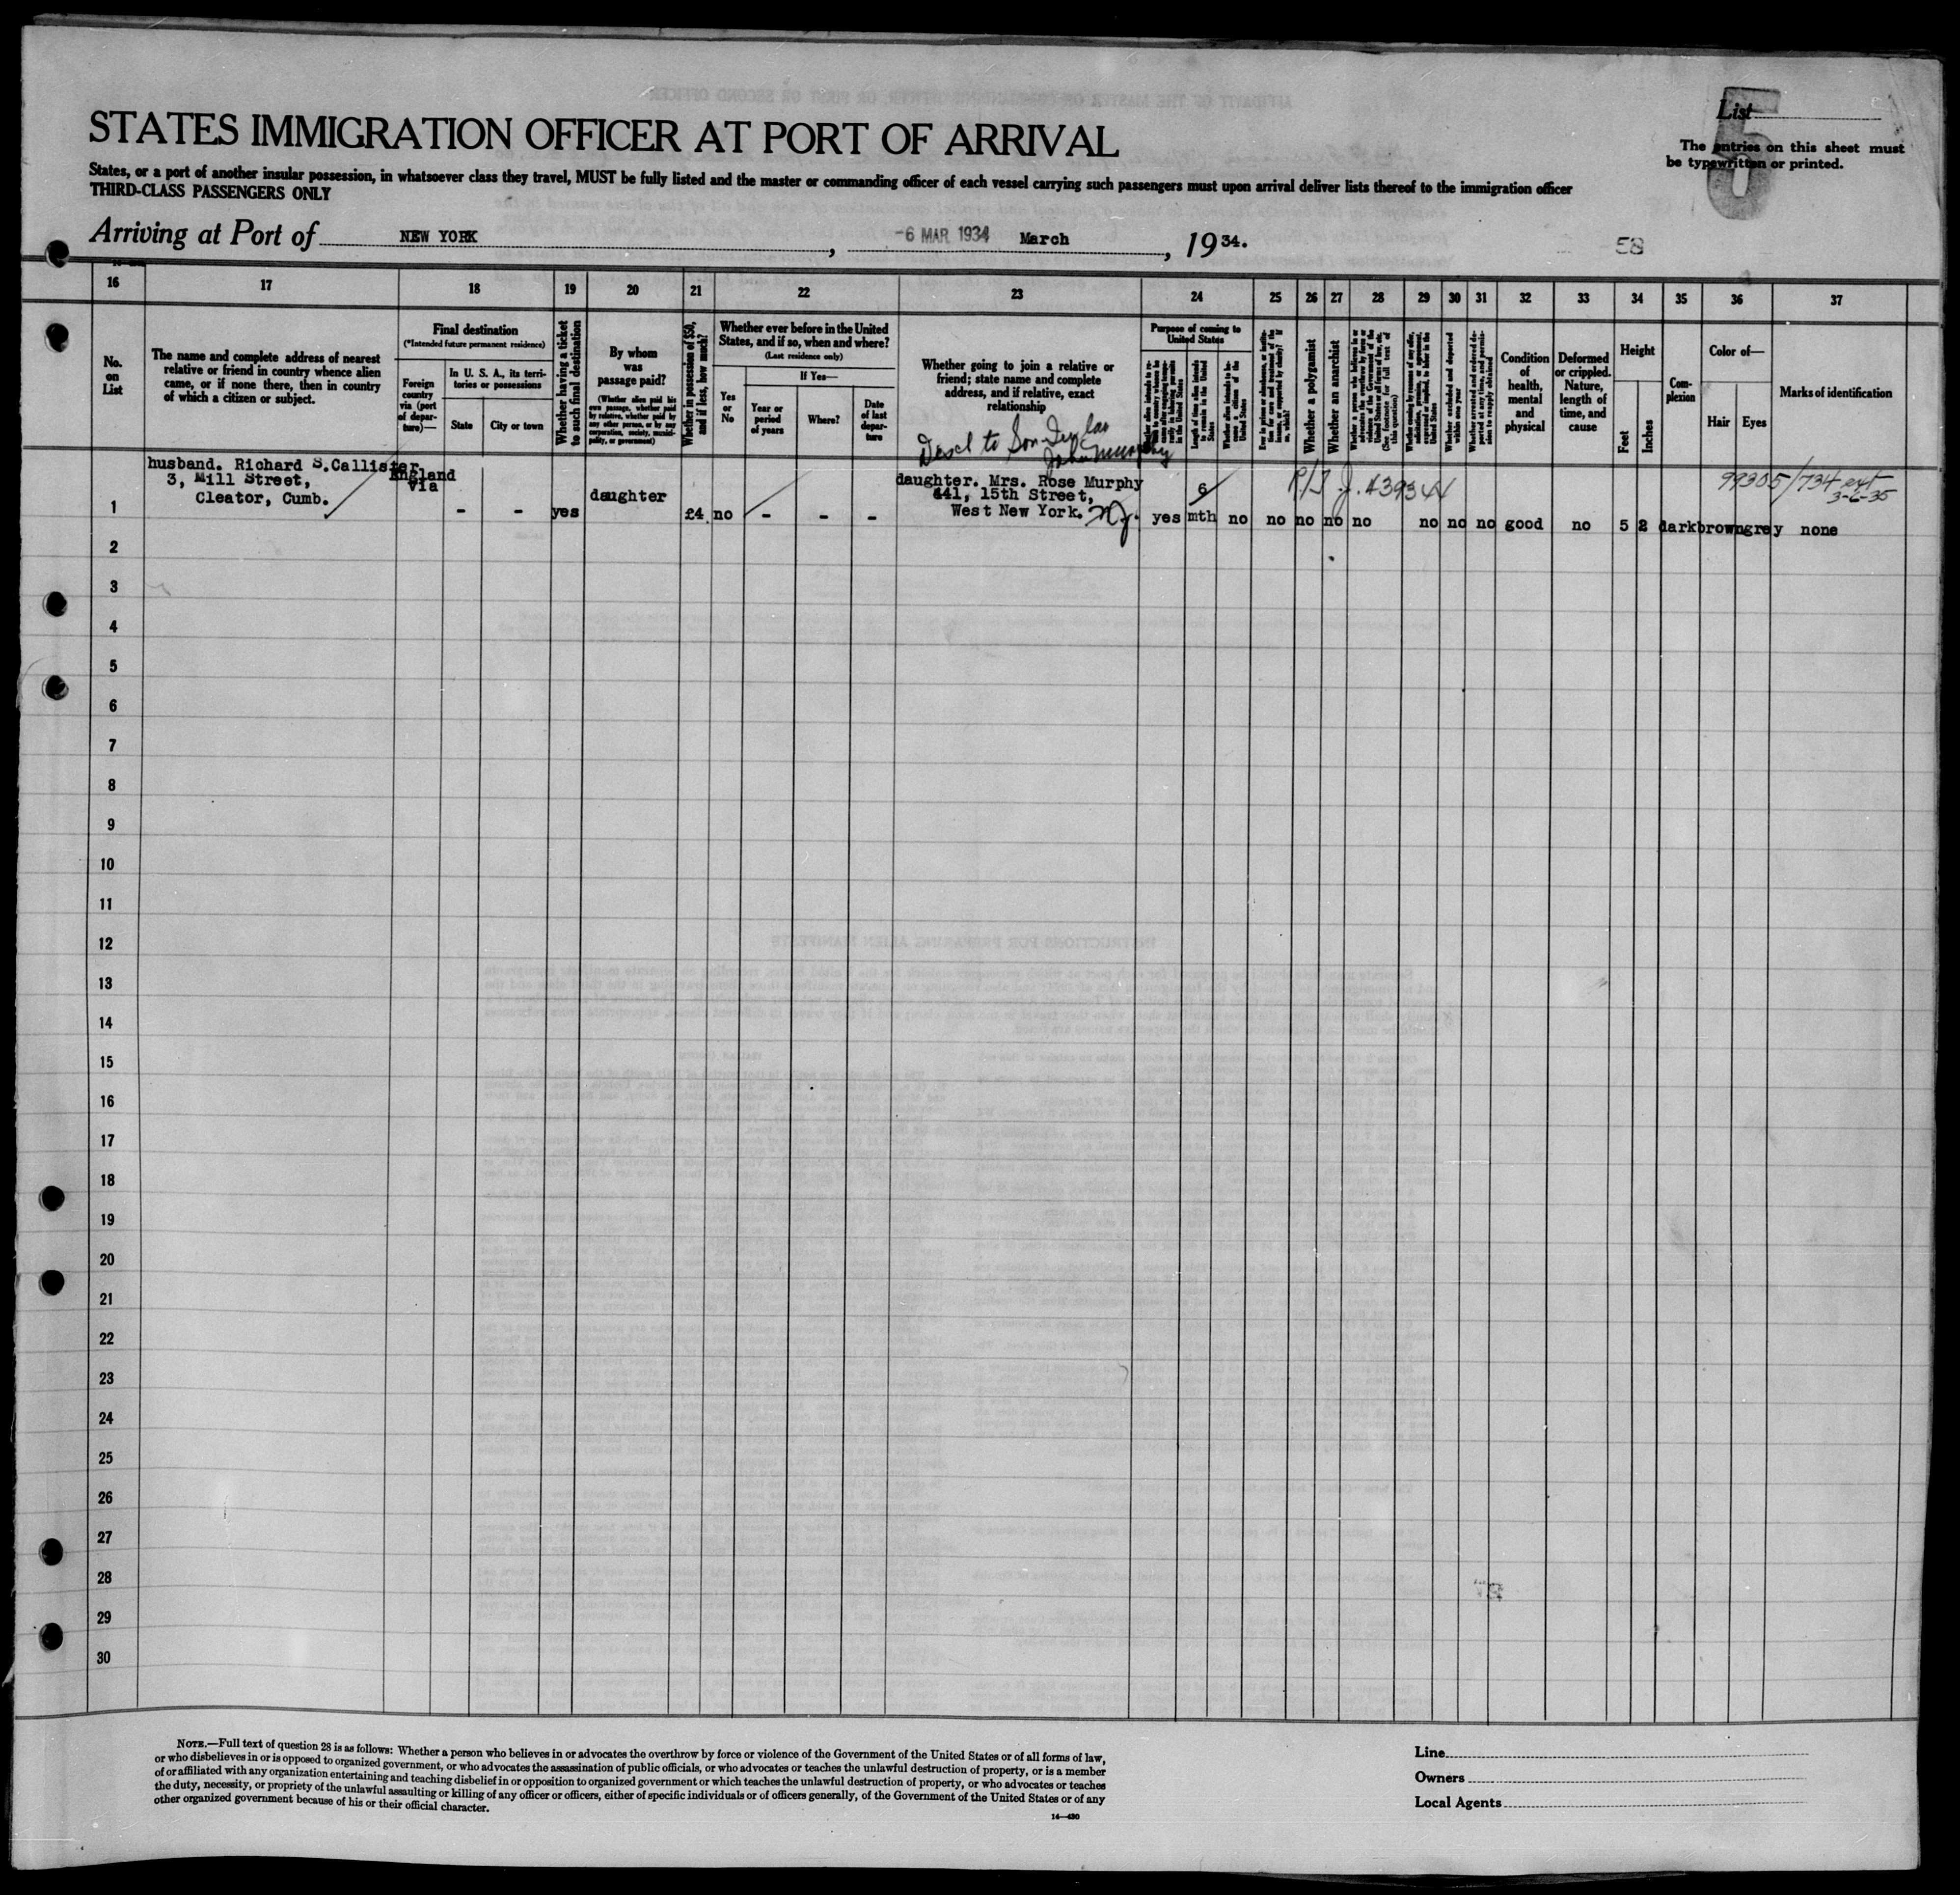 STATES IMMIGRATION OFFICER AT PORT OF ARRIVAL
List
5
The entries on this sheet must
be typewritten or printed.
States, or a port of another insular possession, in whatsoever class they travel, MUST be fully listed and the master or commanding officer of each vessel carrying such passengers must upon arrival deliver lists thereof to the immigration officer
THIRD-CLASS PASSENGERS ONLY
Arriving at Port of NEW YORK, -6 MAR 1934 March, 1934.
58
16 17 18 19 20 21 22 23 24 25 26 27 28 29 30 31 32 33 34 35 36 37
No.
on
List
The name and complete address of nearest
relative or friend in country whence alien
came, or if none there, then in country
of which a citizen or subject.
Final destination
(*Intended future permanent residence)
Foreign
country
via (port
of depar-
ture)—
In U. S. A., its terri-
tories or possessions
State
City or town
Whether having a ticket
to such final destination
By whom
was
passage paid?
(Whether alien paid his
own passage, whether paid
by relative, whether paid by
any other person, or by any
corporation, society, munici-
pality, or government)
Whether in possession of $50,
and if less, how much?
Whether ever before in the United
States, and if so, when and where?
(Last residence only)
Yes
or
No
If Yes—
Year or
period
of years
Where?
Date
of last
depar-
ture
Whether going to join a relative or
friend; state name and complete
address, and if relative, exact
relationship
Purpose of coming to
United States
Length of time alien intends
to remain in the United
States
Whether alien intends to be-
come a citizen of the
United States
Whether a polygamist
Whether an anarchist
(See footnote for full text of
this question)
Whether excluded and deported
within one year
Condition
of
health,
mental
and
physical
Deformed
or crippled.
Nature,
length of
time, and
cause
Height
Feet
Inches
Com-
plexion
Color of—
Hair
Eyes
Marks of identification
to Son
John Murphy
husband. Richard S.Callister
3, Mill Street,
Cleator, Cumb.
England
via
- -
yes
daughter
£4 no - - -
daughter. Mrs. Rose Murphy
441, 15th Street,
West New York. N.J.
yes
6
mth
no no no no no no no no good no 5 2 dark brown grey none
99305/734 ext
3-6-35
1
2
3
4
5
6
7
8
9
10
11
12
13
14
15
16
17
18
19
20
21
22
23
24
25
26
27
28
29
30
NOTE.—Full text of question 28 is as follows: Whether a person who believes in or advocates the overthrow by force or violence of the Government of the United States or of all forms of law,
or who disbelieves in or is opposed to organized government, or who advocates the assassination of public officials, or who advocates or teaches the unlawful destruction of property, or is a member
of or affiliated with any organization entertaining and teaching disbelief in or opposition to organized government or which teaches the unlawful destruction of property, or who advocates or teaches
the duty, necessity, or propriety of the unlawful assaulting or killing of any officer or officers, either of specific individuals or of officers generally, of the Government of the United States or of any
other organized government because of his or their official character.
14—430
Line
Owners
Local Agents